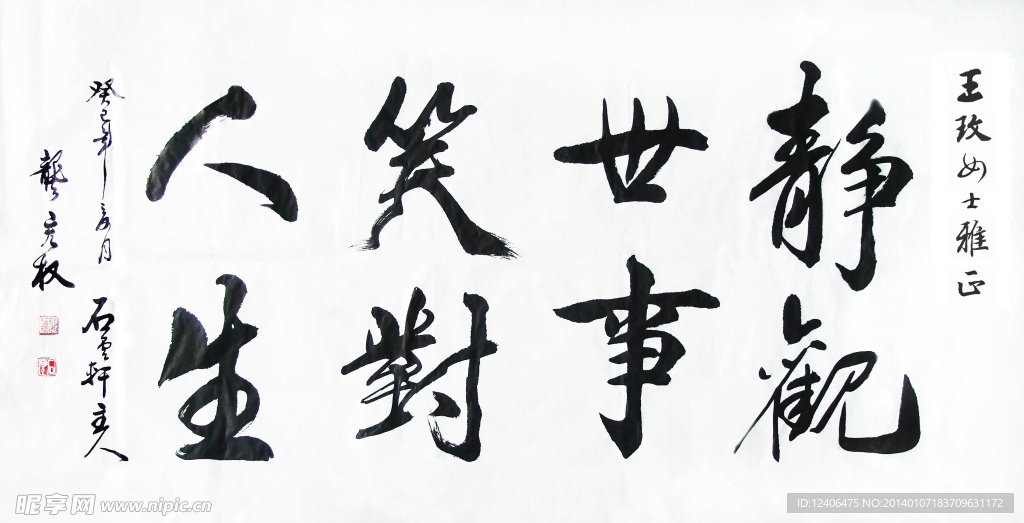 王玫女士雅正
靜觀
世事
笑對
人生
癸巳年亥月石雲軒主人
龔宏权
昵享网 www.nipic.cn
ID:12406475 NO:20140107183709631172